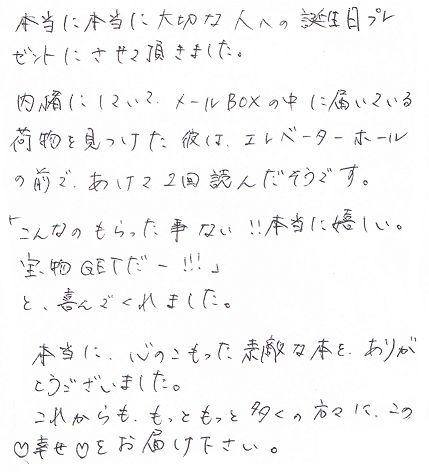 本当に本当に大切な人への誕生日プレ
ゼントにさせて頂きました。
内緒にしていて、メールBOXの中に届いている
荷物を見つけた彼は、エレベーターホール
の前で、あけて2回読んだそうです。
「こんなのもらった事ない!!本当に嬉しい。
宝物GETだー!!!」
と、喜んでくれました。
本当に、心のこもった素敵な本を、ありが
とうございました。
これからも、もっともっと多くの方々に、この
♡幸せ♡をお届け下さい。